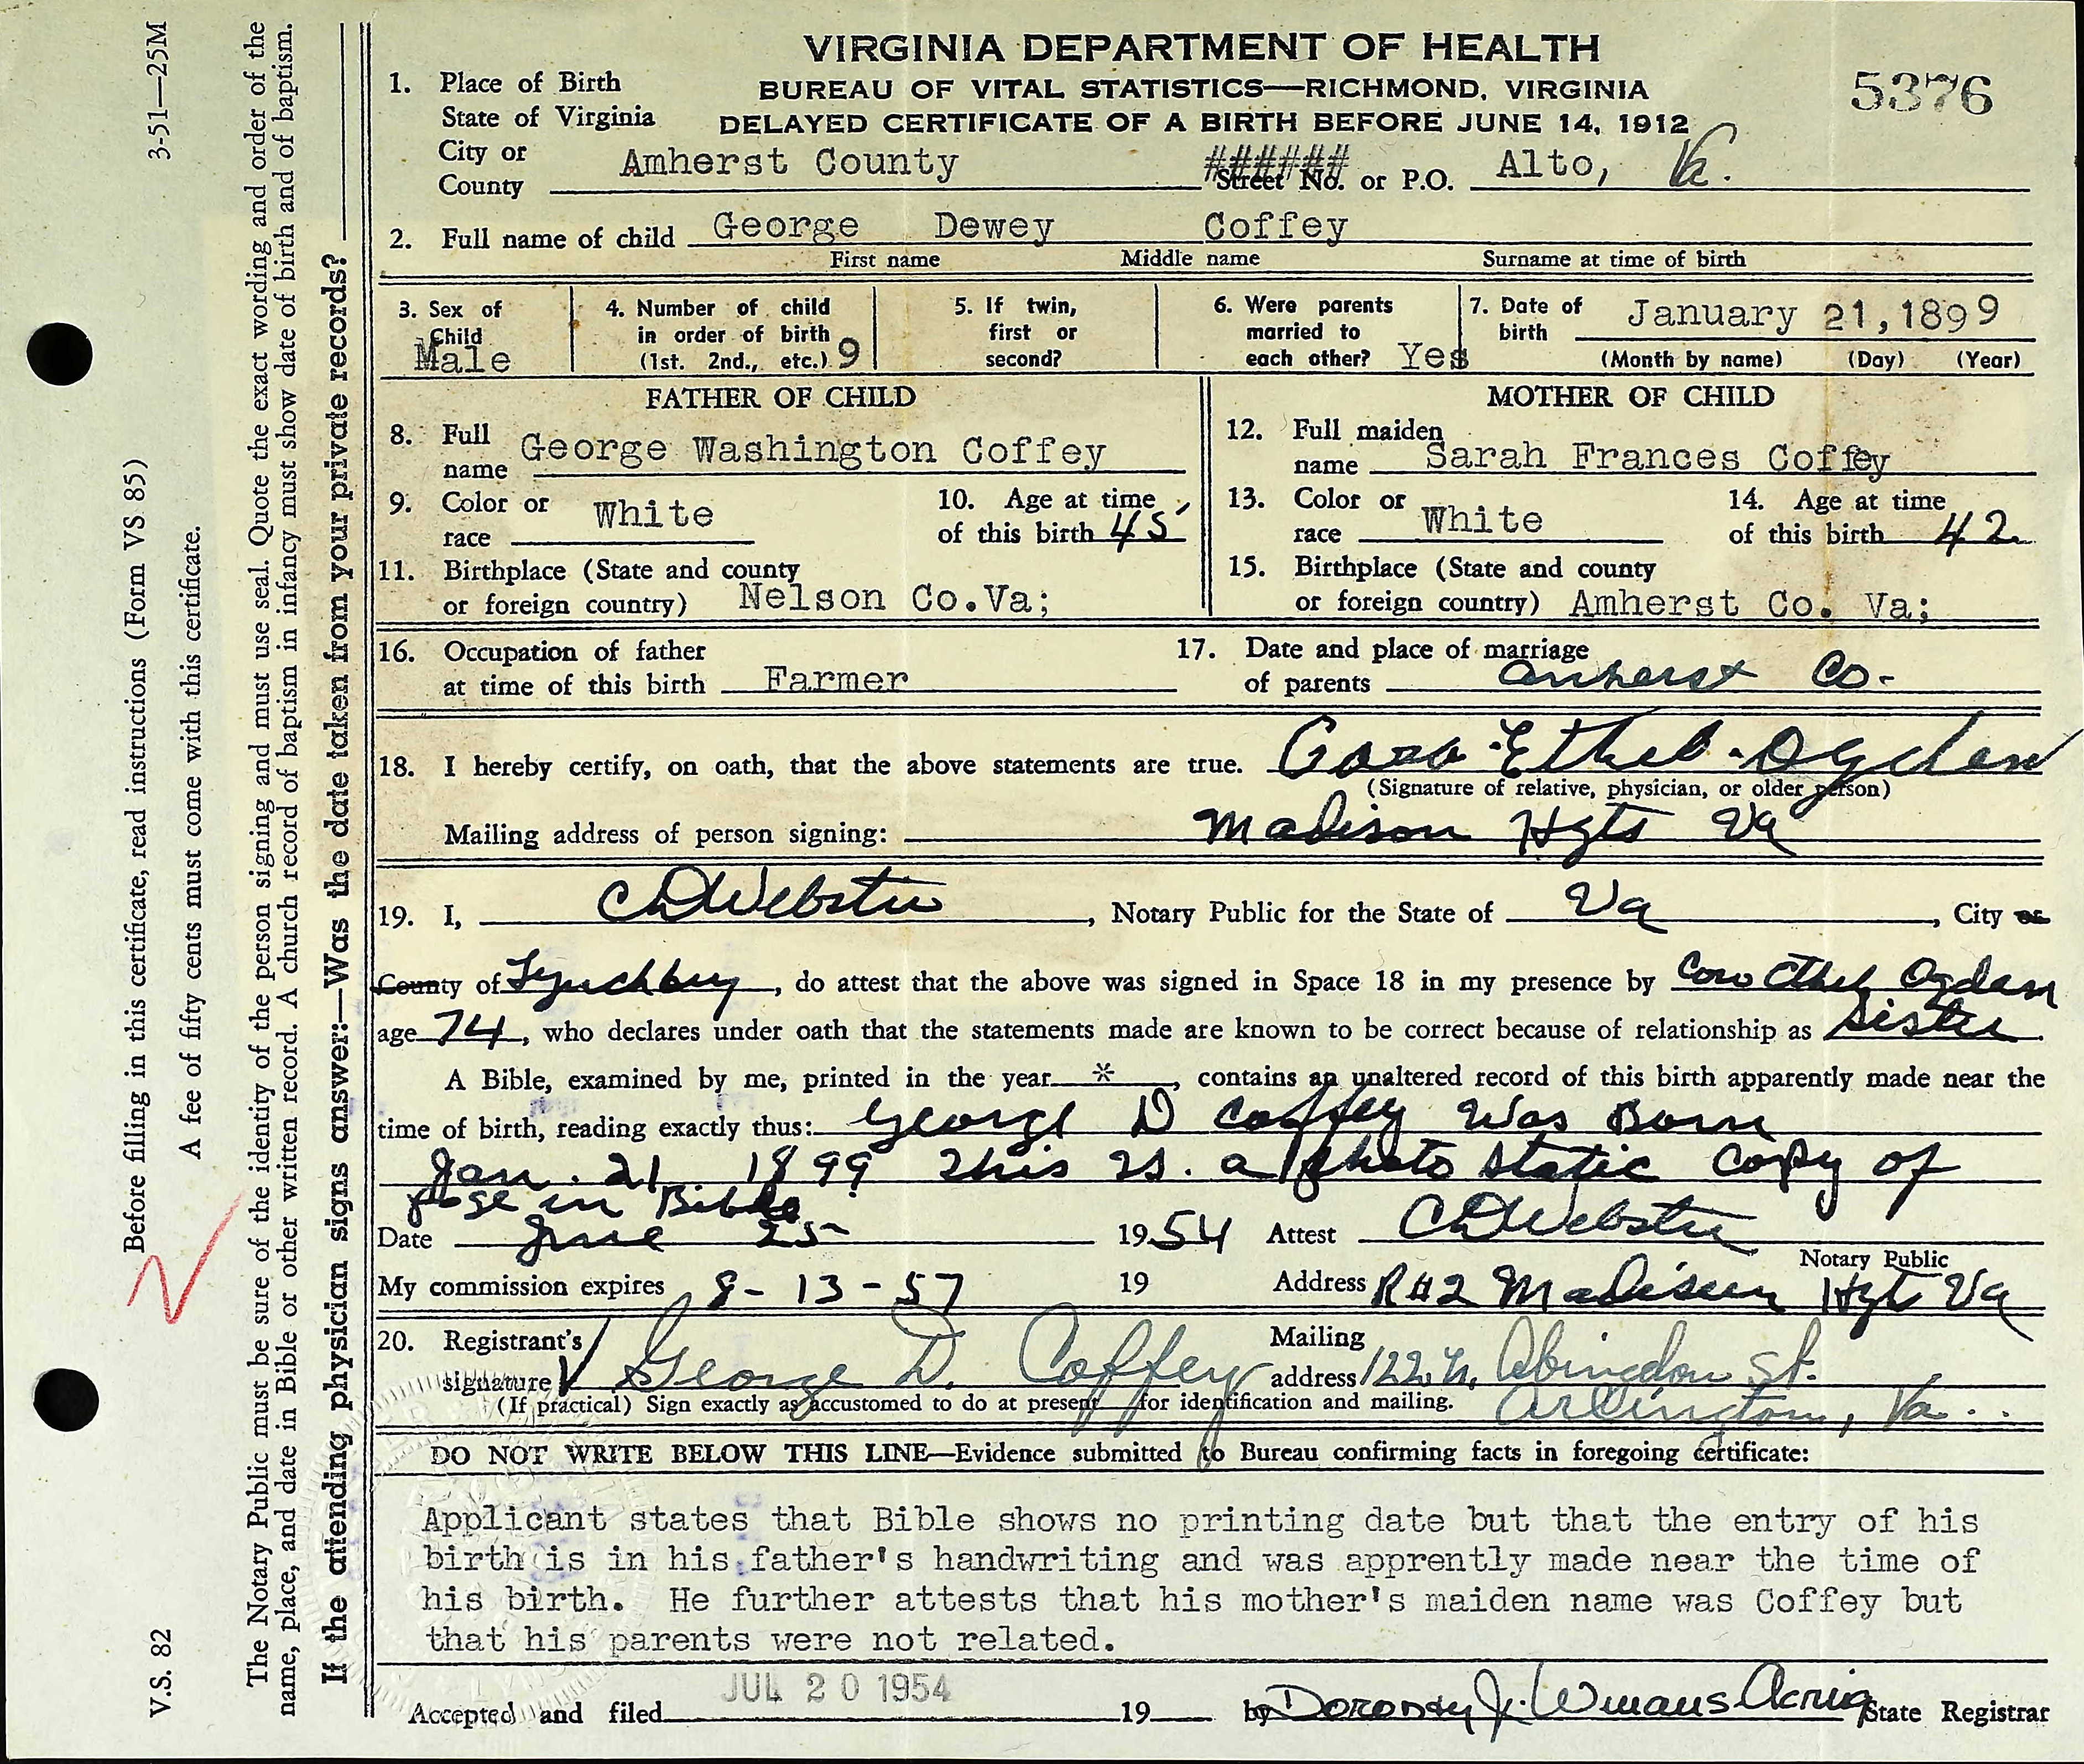 VIRGINIA DEPARTMENT OF HEALTH
BUREAU OF VITAL STATISTICS—RICHMOND, VIRGINIA
DELAYED CERTIFICATE OF A BIRTH BEFORE JUNE 14, 1912
5376
1. Place of Birth
State of Virginia
City or County Amherst County ###### Street No. or P.O. Alto, Va.
2. Full name of child George Dewey Coffey
First name Middle name Surname at time of birth
3. Sex of Child Male
4. Number of child in order of birth (1st. 2nd., etc.) 9
5. If twin, first or second?
6. Were parents married to each other? Yes
7. Date of birth January 21, 1899
(Month by name) (Day) (Year)
FATHER OF CHILD
8. Full name George Washington Coffey
9. Color or race White
10. Age at time of this birth 45
11. Birthplace (State and county or foreign country) Nelson Co.Va;
MOTHER OF CHILD
12. Full maiden name Sarah Frances Coffey
13. Color or race White
14. Age at time of this birth 42
15. Birthplace (State and county or foreign country) Amherst Co. Va;
16. Occupation of father at time of this birth Farmer
17. Date and place of marriage of parents Amherst Co.
18. I hereby certify, on oath, that the above statements are true. Cora Ethel Ogden
(Signature of relative, physician, or older person)
Mailing address of person signing: Madison Hgts Va
19. I, CD Webster, Notary Public for the State of Va, City or
County of Lynchburg, do attest that the above was signed in Space 18 in my presence by Cora Ethel Ogden
age 74, who declares under oath that the statements made are known to be correct because of relationship as Sister.
A Bible, examined by me, printed in the year * , contains an unaltered record of this birth apparently made near the
time of birth, reading exactly thus: George D Coffey Was Born
Jan. 21 1899 This is. a photo static Copy of
page in Bible
Date June 25 1954 Attest CD Webster
Notary Public
My commission expires 8-13-57 19 Address R#2 Madison Hgts Va
20. Registrant's signature George D. Coffey Mailing address 122 N. Abingdon St.
(If practical) Sign exactly as accustomed to do at present for identification and mailing. Arlington, Va.
DO NOT WRITE BELOW THIS LINE—Evidence submitted to Bureau confirming facts in foregoing certificate:
Applicant states that Bible shows no printing date but that the entry of his
birth is in his father's handwriting and was apprently made near the time of
his birth. He further attests that his mother's maiden name was Coffey but
that his parents were not related.
Accepted and filed JUL 20 1954 19 by Dorothy J. Winans Acting State Registrar
3-51—25M
Before filling in this certificate, read instructions (Form VS 85)
A fee of fifty cents must come with this certificate.
V.S. 82
The Notary Public must be sure of the identity of the person signing and must use seal. Quote the exact wording and order of the
name, place, and date in Bible or other written record. A church record of baptism in infancy must show date of birth and of baptism.
If the attending physician signs answer:—Was the date taken from your private records?